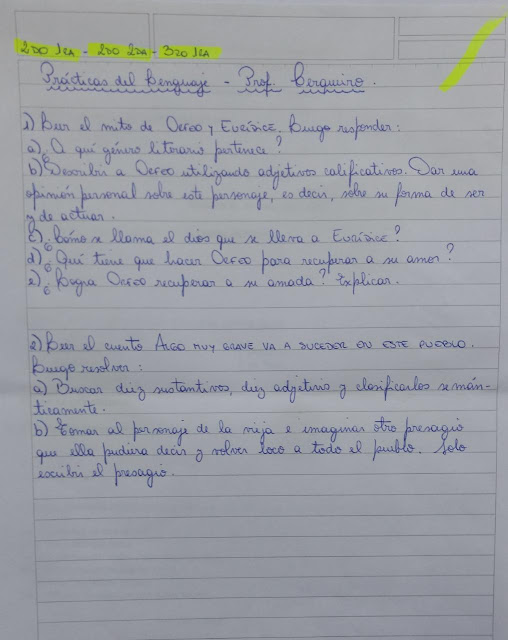 2DO 1RA - 2DO 2DA - 3RO 1RA
Prácticas del Lenguaje - Prof. Cerquiro.
1) Leer el mito de ORFEO y EURÍDICE. Luego responder:
a) ¿A qué género literario pertenece?
b) Describir a ORFEO utilizando adjetivos calificativos. Dar una
opinión personal sobre este personaje, es decir, sobre su forma de ser
y de actuar.
c) ¿Cómo se llama el dios que se lleva a EURÍDICE?
d) ¿Qué tiene que hacer ORFEO para recuperar a su amor?
e) ¿Logra ORFEO recuperar a su amada? Explicar.
2) Leer el cuento ALGO MUY GRAVE VA A SUCEDER EN ESTE PUEBLO.
Luego resolver:
a) Buscar diez sustantivos, diez adjetivos y clasificarlos semán-
ticamente.
b) Tomar al personaje de la vieja e imaginar otro presagio
que ella pudiera decir y volver loco a todo el pueblo. Solo
escribir el presagio.